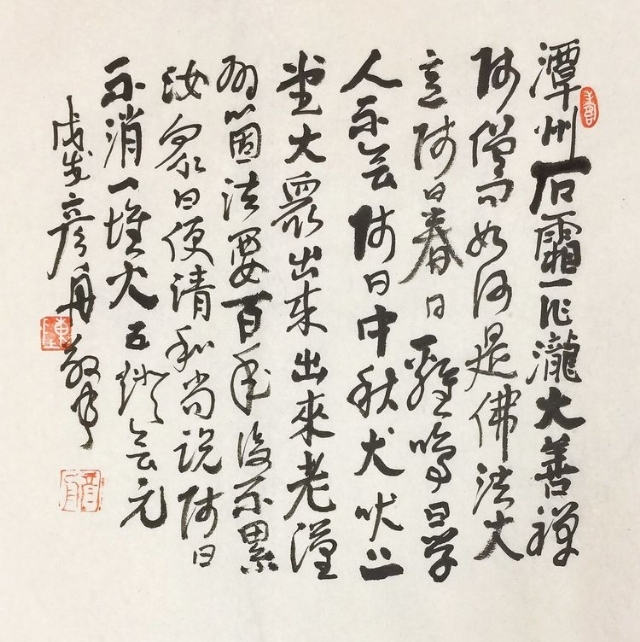 潭州石霜一作瀧大善禅
师僧问如何是佛法大
意师曰春日雞鸣曰学
人不会师曰中秋犬吠上
堂大眾出来出來老漢
有箇法要百年後不累
汝众曰便清和尚说师曰
不消一堆火五燈会元
戊戌彦舟